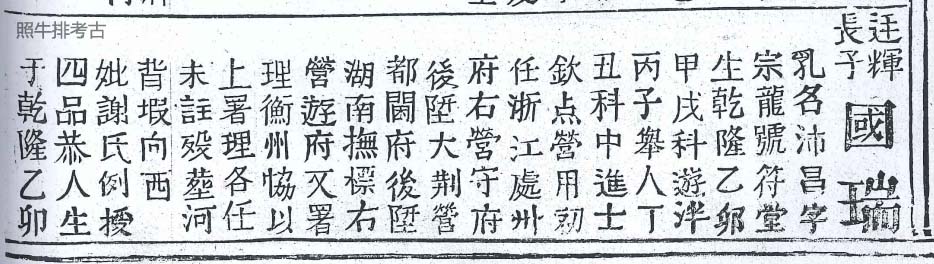 照牛排考古
廷輝
長子
國瑞
乳名沛昌字
宗龍號符堂
生乾隆乙卯
甲戌科游泮
丙子舉人丁
丑科中進士
欽点營用初
任浙江處州
府右營守府
後陞大荊營
都閫府後陞
湖南撫標右
營遊府又署
理衡州協以
上署理各任
未註歿塟河
背塅向西
妣謝氏例授
四品恭人生
于乾隆乙卯